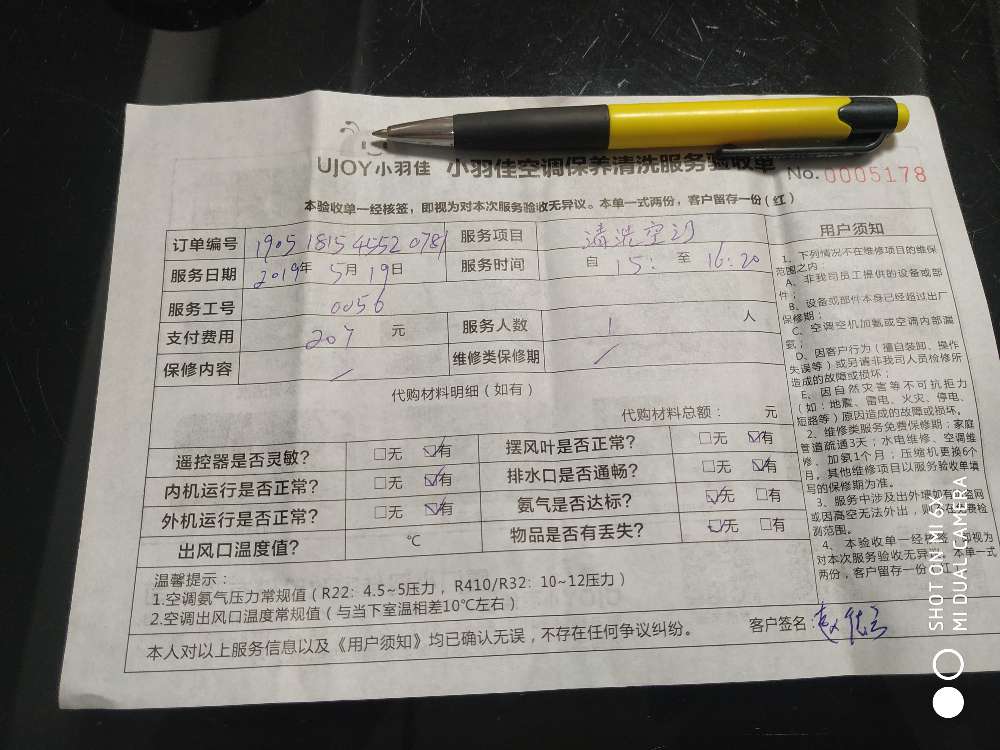 UJOY小羽佳 小羽佳空调保养清洗服务验收单 No.0005178
本验收单一经核签，即视为对本次服务验收无异议。本单一式两份，客户留存一份（红）
订单编号 1905 1815 4552 0781 服务项目 清洗空调
服务日期 2019年 5月 19日 服务时间 自 15: 至 16:20
服务工号 0056
支付费用 207 元 服务人数 1 人
保修内容 / 维修类保修期 /
代购材料明细（如有）
代购材料总额： 元
遥控器是否灵敏？ □无 ☑有 摆风叶是否正常？ □无 ☑有
内机运行是否正常？ □无 ☑有 排水口是否通畅？ □无 ☑有
外机运行是否正常？ □无 ☑有 氨气是否达标？ ☑无 □有
出风口温度值？ ℃ 物品是否有丢失？ ☑无 □有
温馨提示：
1.空调氨气压力常规值（R22：4.5~5压力，R410/R32：10~12压力）
2.空调出风口温度常规值（与当下室温相差10℃左右）
本人对以上服务信息以及《用户须知》均已确认无误，不存在任何争议纠纷。 客户签名：
用户须知
1、下列情况不在维修项目的维保
范围之内：
A、非我司员工提供的设备或部
件；
B、设备或部件本身已经超过出厂
保修期；
C、空调空机加氨或空调内部漏
氨；
D、因客户行为（擅自装卸、操作
失误等）或另请非我司人员检修所
造成的故障或损坏；
E、因自然灾害等不可抗拒力
（如：地震、雷电、火灾、停电、
短路等）原因造成的故障或损坏。
2、维修类服务免费保修期：家庭
管道疏通3天；水电维修、空调维
修、加氨1个月；压缩机更换6个
月，其他维修项目以服务验收单填
写的保修期为准。
3、服务中涉及出外墙如有防盗网
或因高空无法外出，则不在免费检
测范围。
4、本验收单一经核签，即视为
对本次服务验收无异议。本单一式
两份，客户留存一份（红）
SHOT ON MI 9X
MI DUAL CAMERA